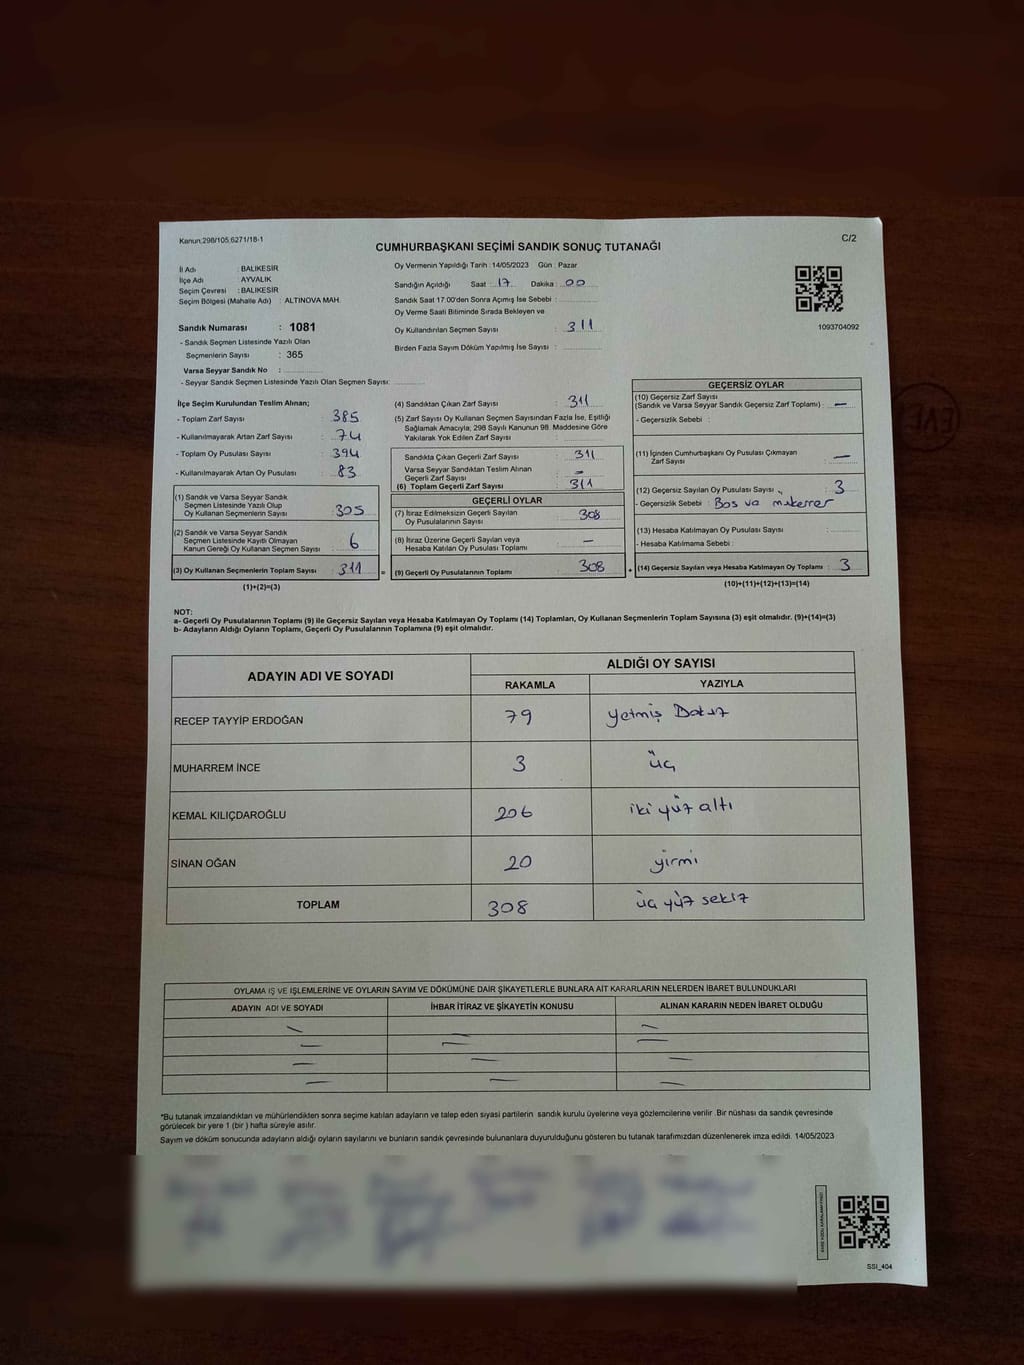 Kanun:298/105,6271/18-1
C/2
CUMHURBAŞKANI SEÇİMİ SANDIK SONUÇ TUTANAĞI
İl Adı : BALIKESİR
İlçe Adı AYVALIK
Seçim Çevresi : BALIKESİR
Seçim Bölgesi (Mahalle Adı) : ALTINOVA MAH.
Sandık Numarası : 1081
- Sandık Seçmen Listesinde Yazılı Olan
Seçmenlerin Sayısı : 365
Varsa Seyyar Sandık No :
- Seyyar Sandık Seçmen Listesinde Yazılı Olan Seçmen Sayısı:
Oy Vermenin Yapıldığı Tarih :14/05/2023 Gün : Pazar
Sandığın Açıldığı Saat : 17 Dakika : 00
Sandık Saat 17.00'den Sonra Açımış İse Sebebi :
Oy Verme Saati Bitiminde Sırada Bekleyen ve
Oy Kullandırılan Seçmen Sayısı : 311
Birden Fazla Sayım Döküm Yapılmış İse Sayısı :
1093704092
İlçe Seçim Kurulundan Teslim Alınan;
- Toplam Zarf Sayısı : 385
- Kullanılmayarak Artan Zarf Sayısı : 74
- Toplam Oy Pusulası Sayısı : 394
- Kullanılmayarak Artan Oy Pusulası : 83
(1) Sandık ve Varsa Seyyar Sandık
Seçmen Listesinde Yazılı Olup
Oy Kullanan Seçmenlerin Sayısı : 305
(2) Sandık ve Varsa Seyyar Sandık
Seçmen Listesinde Kayıtlı Olmayan
Kanun Gereği Oy Kullanan Seçmen Sayısı : 6
(3) Oy Kullanan Seçmenlerin Toplam Sayısı : 311
(1)+(2)=(3)
(4) Sandıktan Çıkan Zarf Sayısı : 311
(5) Zarf Sayısı Oy Kullanan Seçmen Sayısından Fazla İse, Eşitliği
Sağlamak Amacıyla; 298 Sayılı Kanunun 98. Maddesine Göre
Yakılarak Yok Edilen Zarf Sayısı :
Sandıkta Çıkan Geçerli Zarf Sayısı : 311
Varsa Seyyar Sandıktan Teslim Alınan
Geçerli Zarf Sayısı : -
(6) Toplam Geçerli Zarf Sayısı : 311
GEÇERLİ OYLAR
(7) İtiraz Edilmeksizin Geçerli Sayılan
Oy Pusulalarının Sayısı : 308
(8) İtiraz Üzerine Geçerli Sayılan veya
Hesaba Katılan Oy Pusulası Toplamı : -
= (9) Geçerli Oy Pusulalarının Toplamı : 308
GEÇERSİZ OYLAR
(10) Geçersiz Zarf Sayısı
(Sandık ve Varsa Seyyar Sandık Geçersiz Zarf Toplamı) : -
- Geçersizlik Sebebi :
(11) İçinden Cumhurbaşkanı Oy Pusulası Çıkmayan
Zarf Sayısı : -
(12) Geçersiz Sayılan Oy Pusulası Sayısı : 3
- Geçersizlik Sebebi : Bos va mukerrer
(13) Hesaba Katılmayan Oy Pusulası Sayısı :
- Hesaba Katılmama Sebebi :
+ (14) Geçersiz Sayılan veya Hesaba Katılmayan Oy Toplamı : 3
(10)+(11)+(12)+(13)=(14)
NOT:
a- Geçerli Oy Pusulalarının Toplamı (9) ile Geçersiz Sayılan veya Hesaba Katılmayan Oy Toplamı (14) Toplamları, Oy Kullanan Seçmenlerin Toplam Sayısına (3) eşit olmalıdır. (9)+(14)=(3)
b- Adayların Aldığı Oyların Toplamı, Geçerli Oy Pusulalarının Toplamına (9) eşit olmalıdır.
ADAYIN ADI VE SOYADI ALDIĞI OY SAYISI
RAKAMLA YAZIYLA
RECEP TAYYİP ERDOĞAN 79 yetmiş Dokuz
MUHARREM İNCE 3 üç
KEMAL KILIÇDAROĞLU 206 iki yüz altı
SİNAN OĞAN 20 yirmi
TOPLAM 308 üç yüz sekiz
OYLAMA İŞ VE İŞLEMLERİNE VE OYLARIN SAYIM VE DÖKÜMÜNE DAİR ŞİKAYETLERLE BUNLARA AİT KARARLARIN NELERDEN İBARET BULUNDUKLARI
ADAYIN ADI VE SOYADI İHBAR İTİRAZ VE ŞİKAYETİN KONUSU ALINAN KARARIN NEDEN İBARET OLDUĞU
*Bu tutanak imzalandıktan ve mühürlendikten sonra seçime katılan adayların ve talep eden siyasi partilerin sandık kurulu üyelerine veya gözlemcilerine verilir .Bir nüshası da sandık çevresinde
görülecek bir yere 1 (bir ) hafta süreyle asılır.
Sayım ve döküm sonucunda adayların aldığı oyların sayılarını ve bunların sandık çevresinde bulunanlara duyurulduğunu gösteren bu tutanak tarafımızdan düzenlenerek imza edildi. 14/05/2023
SSI_404